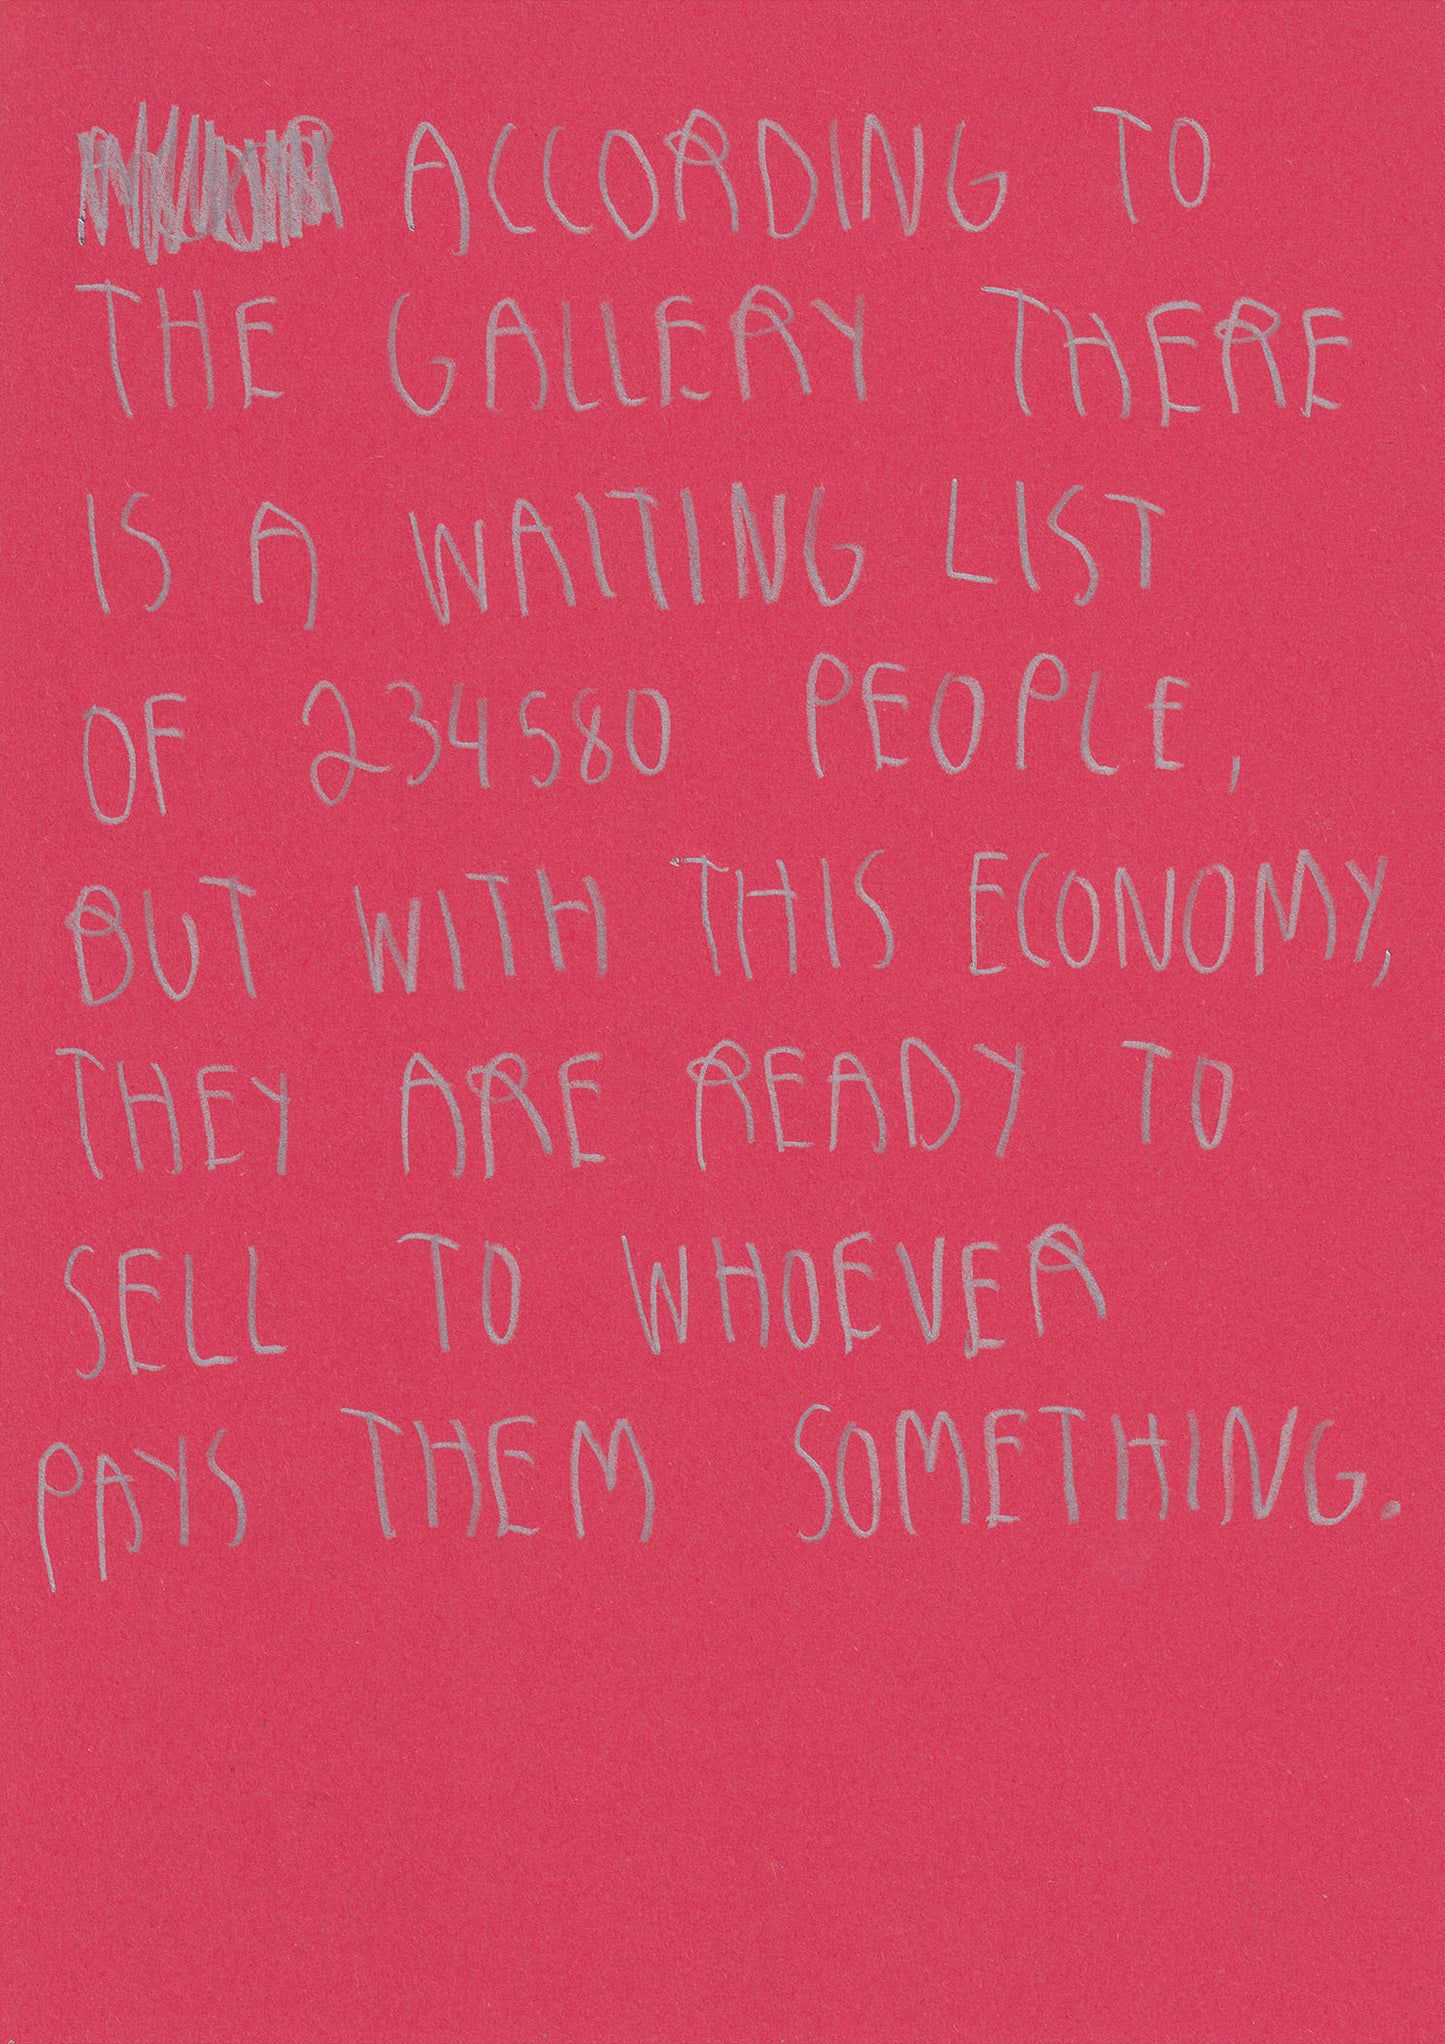 ACCORDING TO
THE GALLERY THERE
IS A WAITING LIST
OF 234580 PEOPLE,
BUT WITH THIS ECONOMY,
THEY ARE READY TO
SELL TO WHOEVER
PAYS THEM SOMETHING.